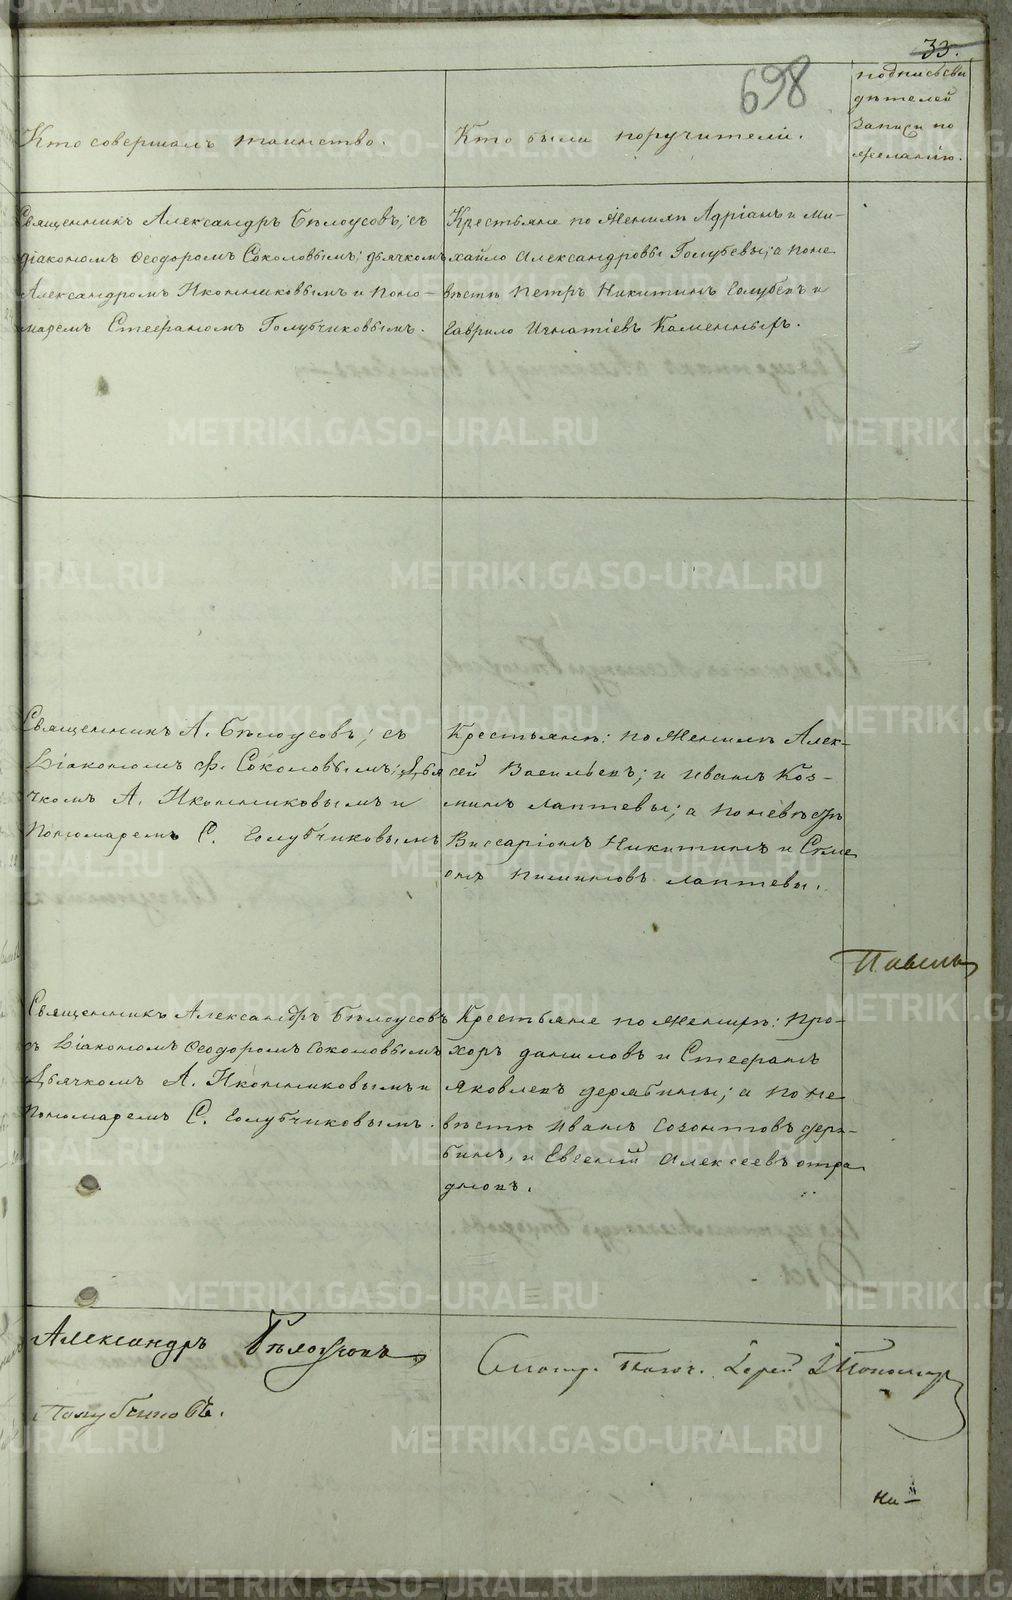 33.
698
Кто совершалъ таинство.
Кто были поручители.
подпись сви
дѣтелей
записи по
желанію.
Священникъ Александръ Бѣлоусовъ; съ
діакономъ Ѳеодоромъ Соколовымъ; дьячкомъ
Александромъ Иконниковымъ и Поно-
маремъ Стефаномъ Голубчиковымъ.
Крестьяне по Женихѣ Адріанъ и Ми-
хайло Александровы Голубевы; а поне
вѣстѣ Петръ Никитинъ Голубевъ и
Гаврило Игнатіевъ Каменныхъ.
Священникъ А. Бѣлоусовъ; съ
Діакономъ Ф. Соколовымъ; Дья
чкомъ А. Иконниковымъ и
Пономаремъ С. Голубчиковымъ
Крестьянъ: по Женихѣ Алек-
сей Васильевъ; и Иванъ Коз-
минъ Лаптевы; а поневѣстѣ
Виссаріонъ Никитинъ и Семе
онъ Пиминовъ Лаптевы.
Павелъ
Священникъ Александръ Бѣлоусовъ
съ Діакономъ Ѳеодоромъ Соколовымъ
Дьячкомъ А. Иконниковымъ и
Пономаремъ С. Голубчиковымъ.
Крестьяне по Женихѣ: Про-
хоръ Даниловъ и Стефанъ
Яковлевъ Дерябины; а по не
вѣстѣ Иванъ Созонтовъ Деря-
бинъ, и Евсений Алексеевъ Отра
дновъ.
Александръ Бѣлоусовъ
Голубчиковъ.
Смотр. Благоч. Іерей І Пономар
METRIKI.GASO-URAL.RU